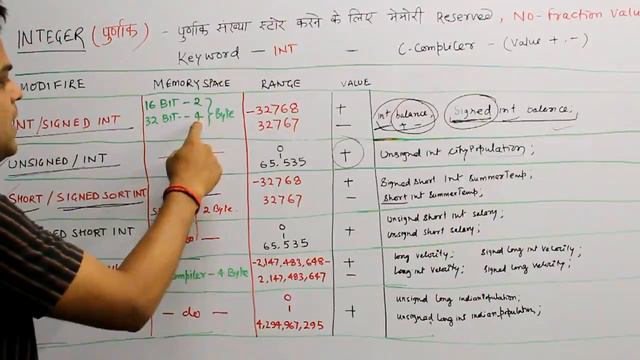 INTEGER (पुर्णांक) - पुर्णांक संख्या स्टोर करने के लिए मेमोरी Reserved, No-fraction Value
Keyword - INT - C-Compiler - (Value + . -)
MODIFIRE MEMORY SPACE RANGE VALUE
16 BIT - 2
32 BIT - 4 } Byte
INT/SIGNED INT
-32768
32767
+
-
int balance, Signed int balance;
+ -
UNSIGNED/INT
0
1
65.535
+
Unsigned int CityPopulation;
SHORT/SIGNED SORT INT
-32768
32767
+
-
Signed Short int SummerTemp,
Short int SummerTemp;
2 Byte
SHORT INT
-
0
1
65.535
+
Unsigned Short int Salary,
Unsigned Short Salary;
Compiler - 4 Byte
-2,147,483,648-
2,147,483,647
+
-
long velocity; Signed long int velocity;
Long int velocity; Signed long velocity;
INT
- do -
0
1
4,294,967,295
+
Unsigned long indianPopulation;
Unsigned long int indian.population;